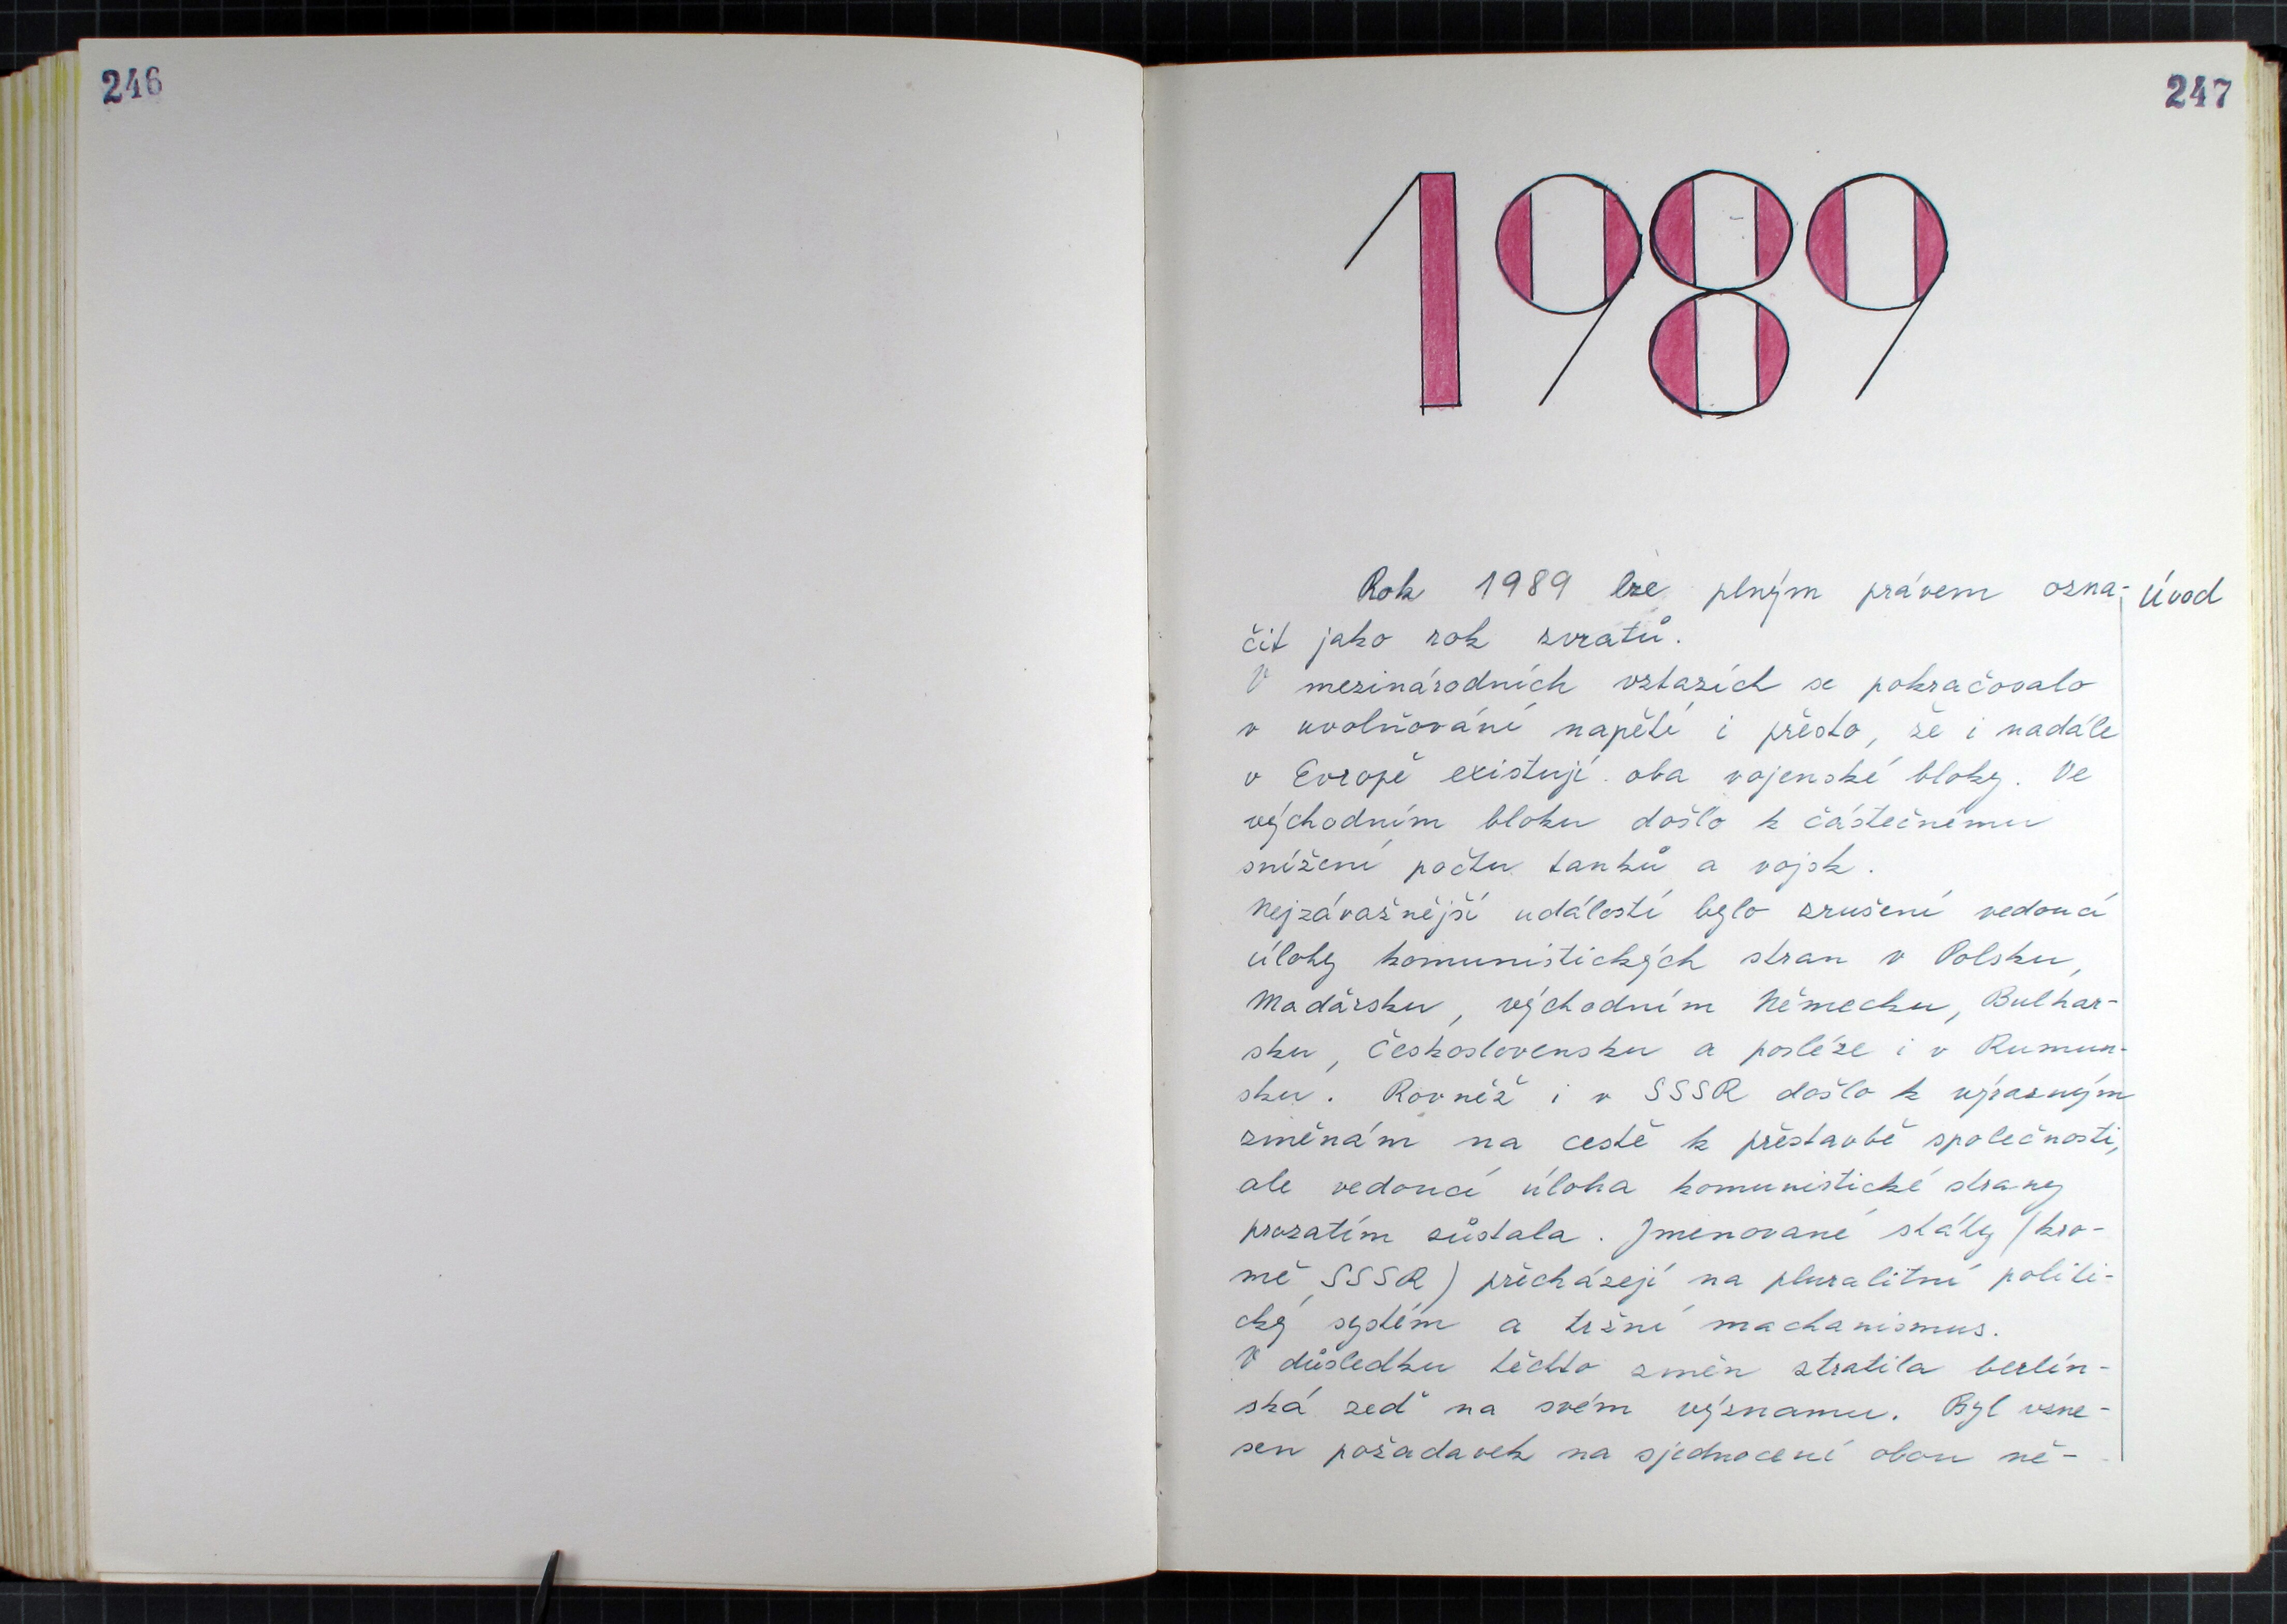 246
247
1989
Rok 1989 lze plným právem ozna-
Úvod
čit jako rok zvratů.
V mezinárodních vztazích se pokračovalo
v uvolňování napětí i přesto, že i nadále
v Evropě existují oba vojenské bloky. Ve
východním bloku došlo k částečnému
snížení počtu tanků a vojsk.
Nejzávažnější událostí bylo zrušení vedoucí
úlohy komunistických stran v Polsku,
Maďarsku, východním Německu, Bulhar-
sku, Československu a posléze i v Rumun-
sku. Rovněž i v SSSR došlo k výrazným
změnám na cestě k přestavbě společnosti,
ale vedoucí úloha komunistické strany
prozatím zůstala. Jmenované státy (kro-
mě SSSR) přecházejí na pluralitní politi-
cký systém a tržní machanismus.
V důsledku těchto změn ztratila berlín-
ská zeď na svém významu. Byl vzne-
sen požadavek na sjednocení obou ně-